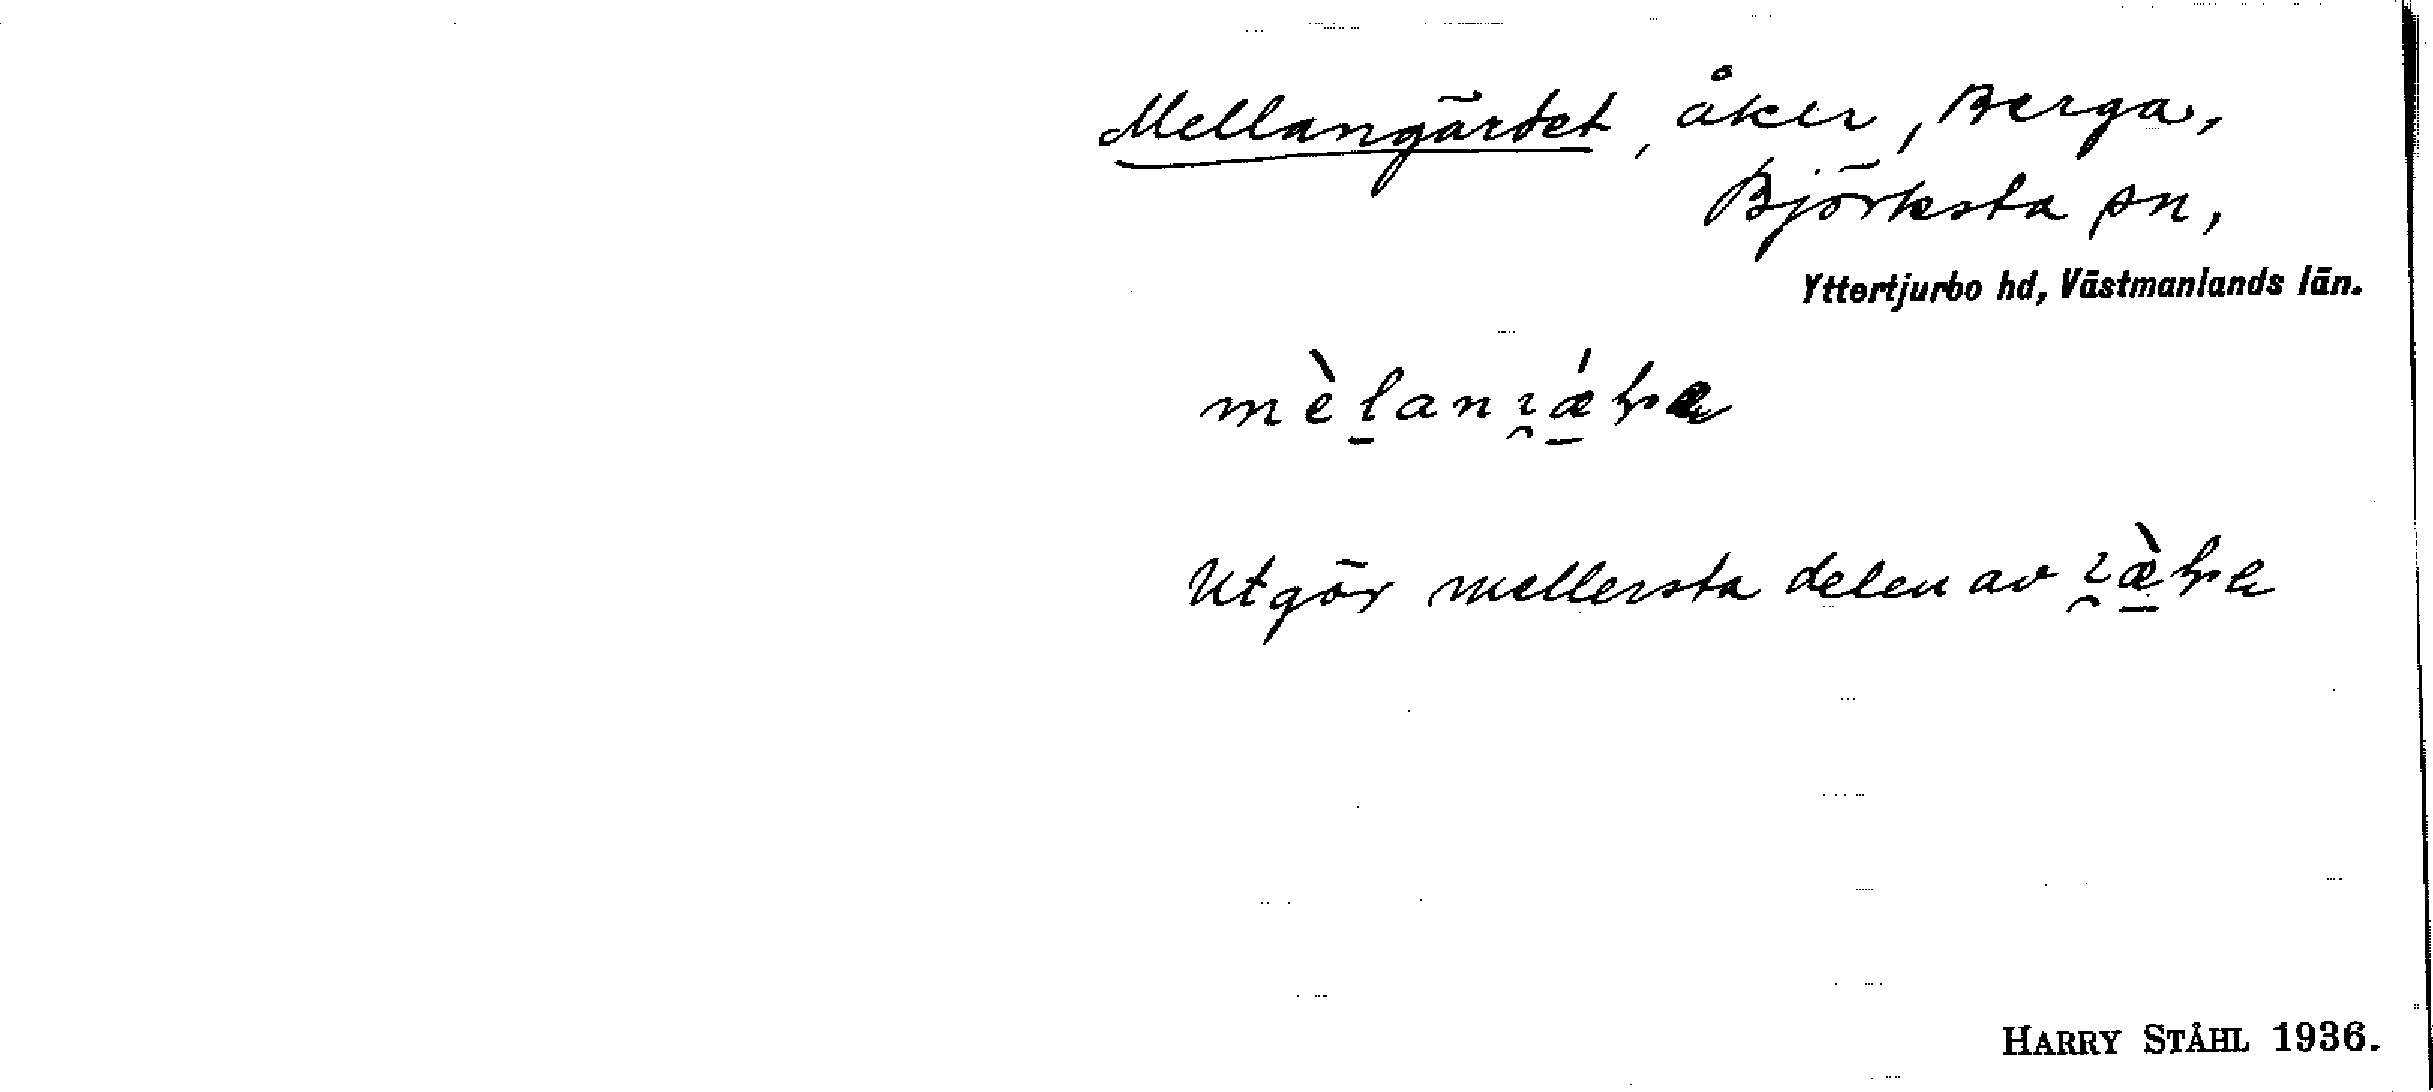 Mellangärdet, åker, Berga,
Björksta sn,
Yttertjurbo hd, Västmanlands län.
Utgör mellersta delen av
HARRY STÅHL 1936.